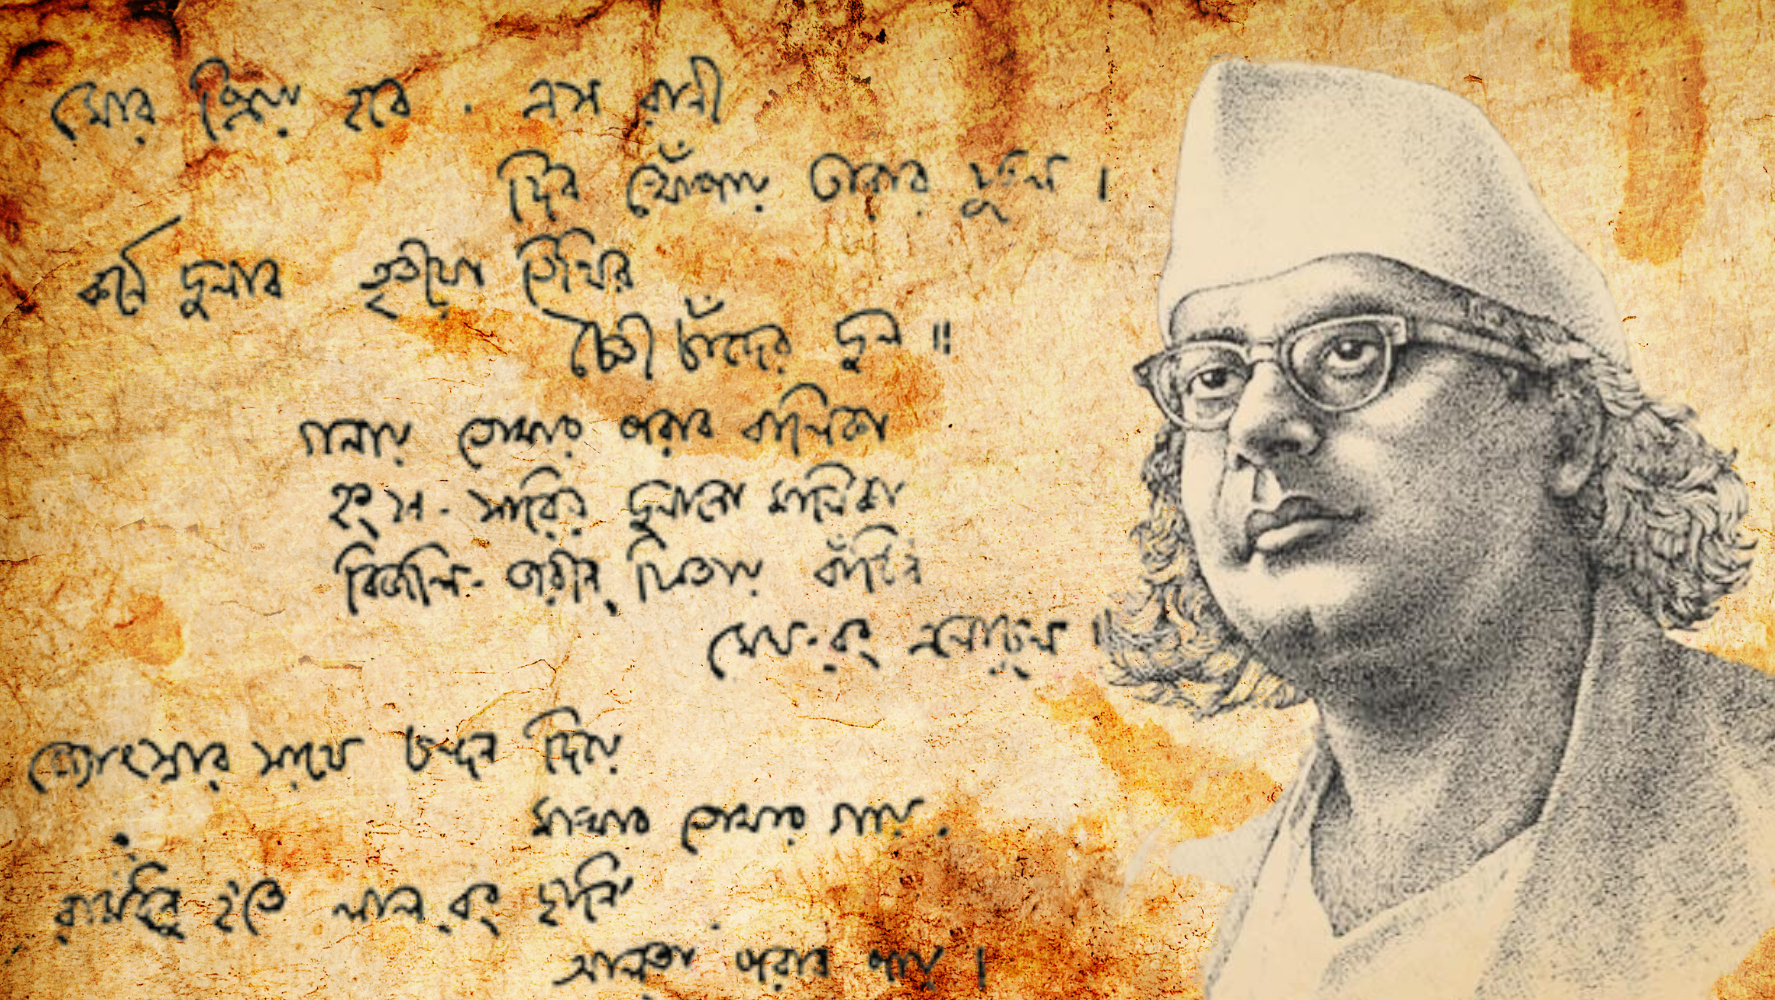 মোর প্রিয়া হবে . এস রানী
দিব খোঁপায় তারার ফুল ।
কর্ণে দুলাব তৃতীয়া তিথির
চৈতী চাঁদের দুল ॥
গলায় তোমার পরাব বালিকা
হংস - সারির দুলানো মালিকা
বিজলি - জরীন্ ফিতায় বাঁধিব
মেঘ - রং এলোচুল ।
জ্যোৎস্নার সাথে চন্দন দিয়ে
মাখাব তোমার গায় .
রামধনু হ'তে লাল রং ছানি'
আলতা পরাব পায় ।